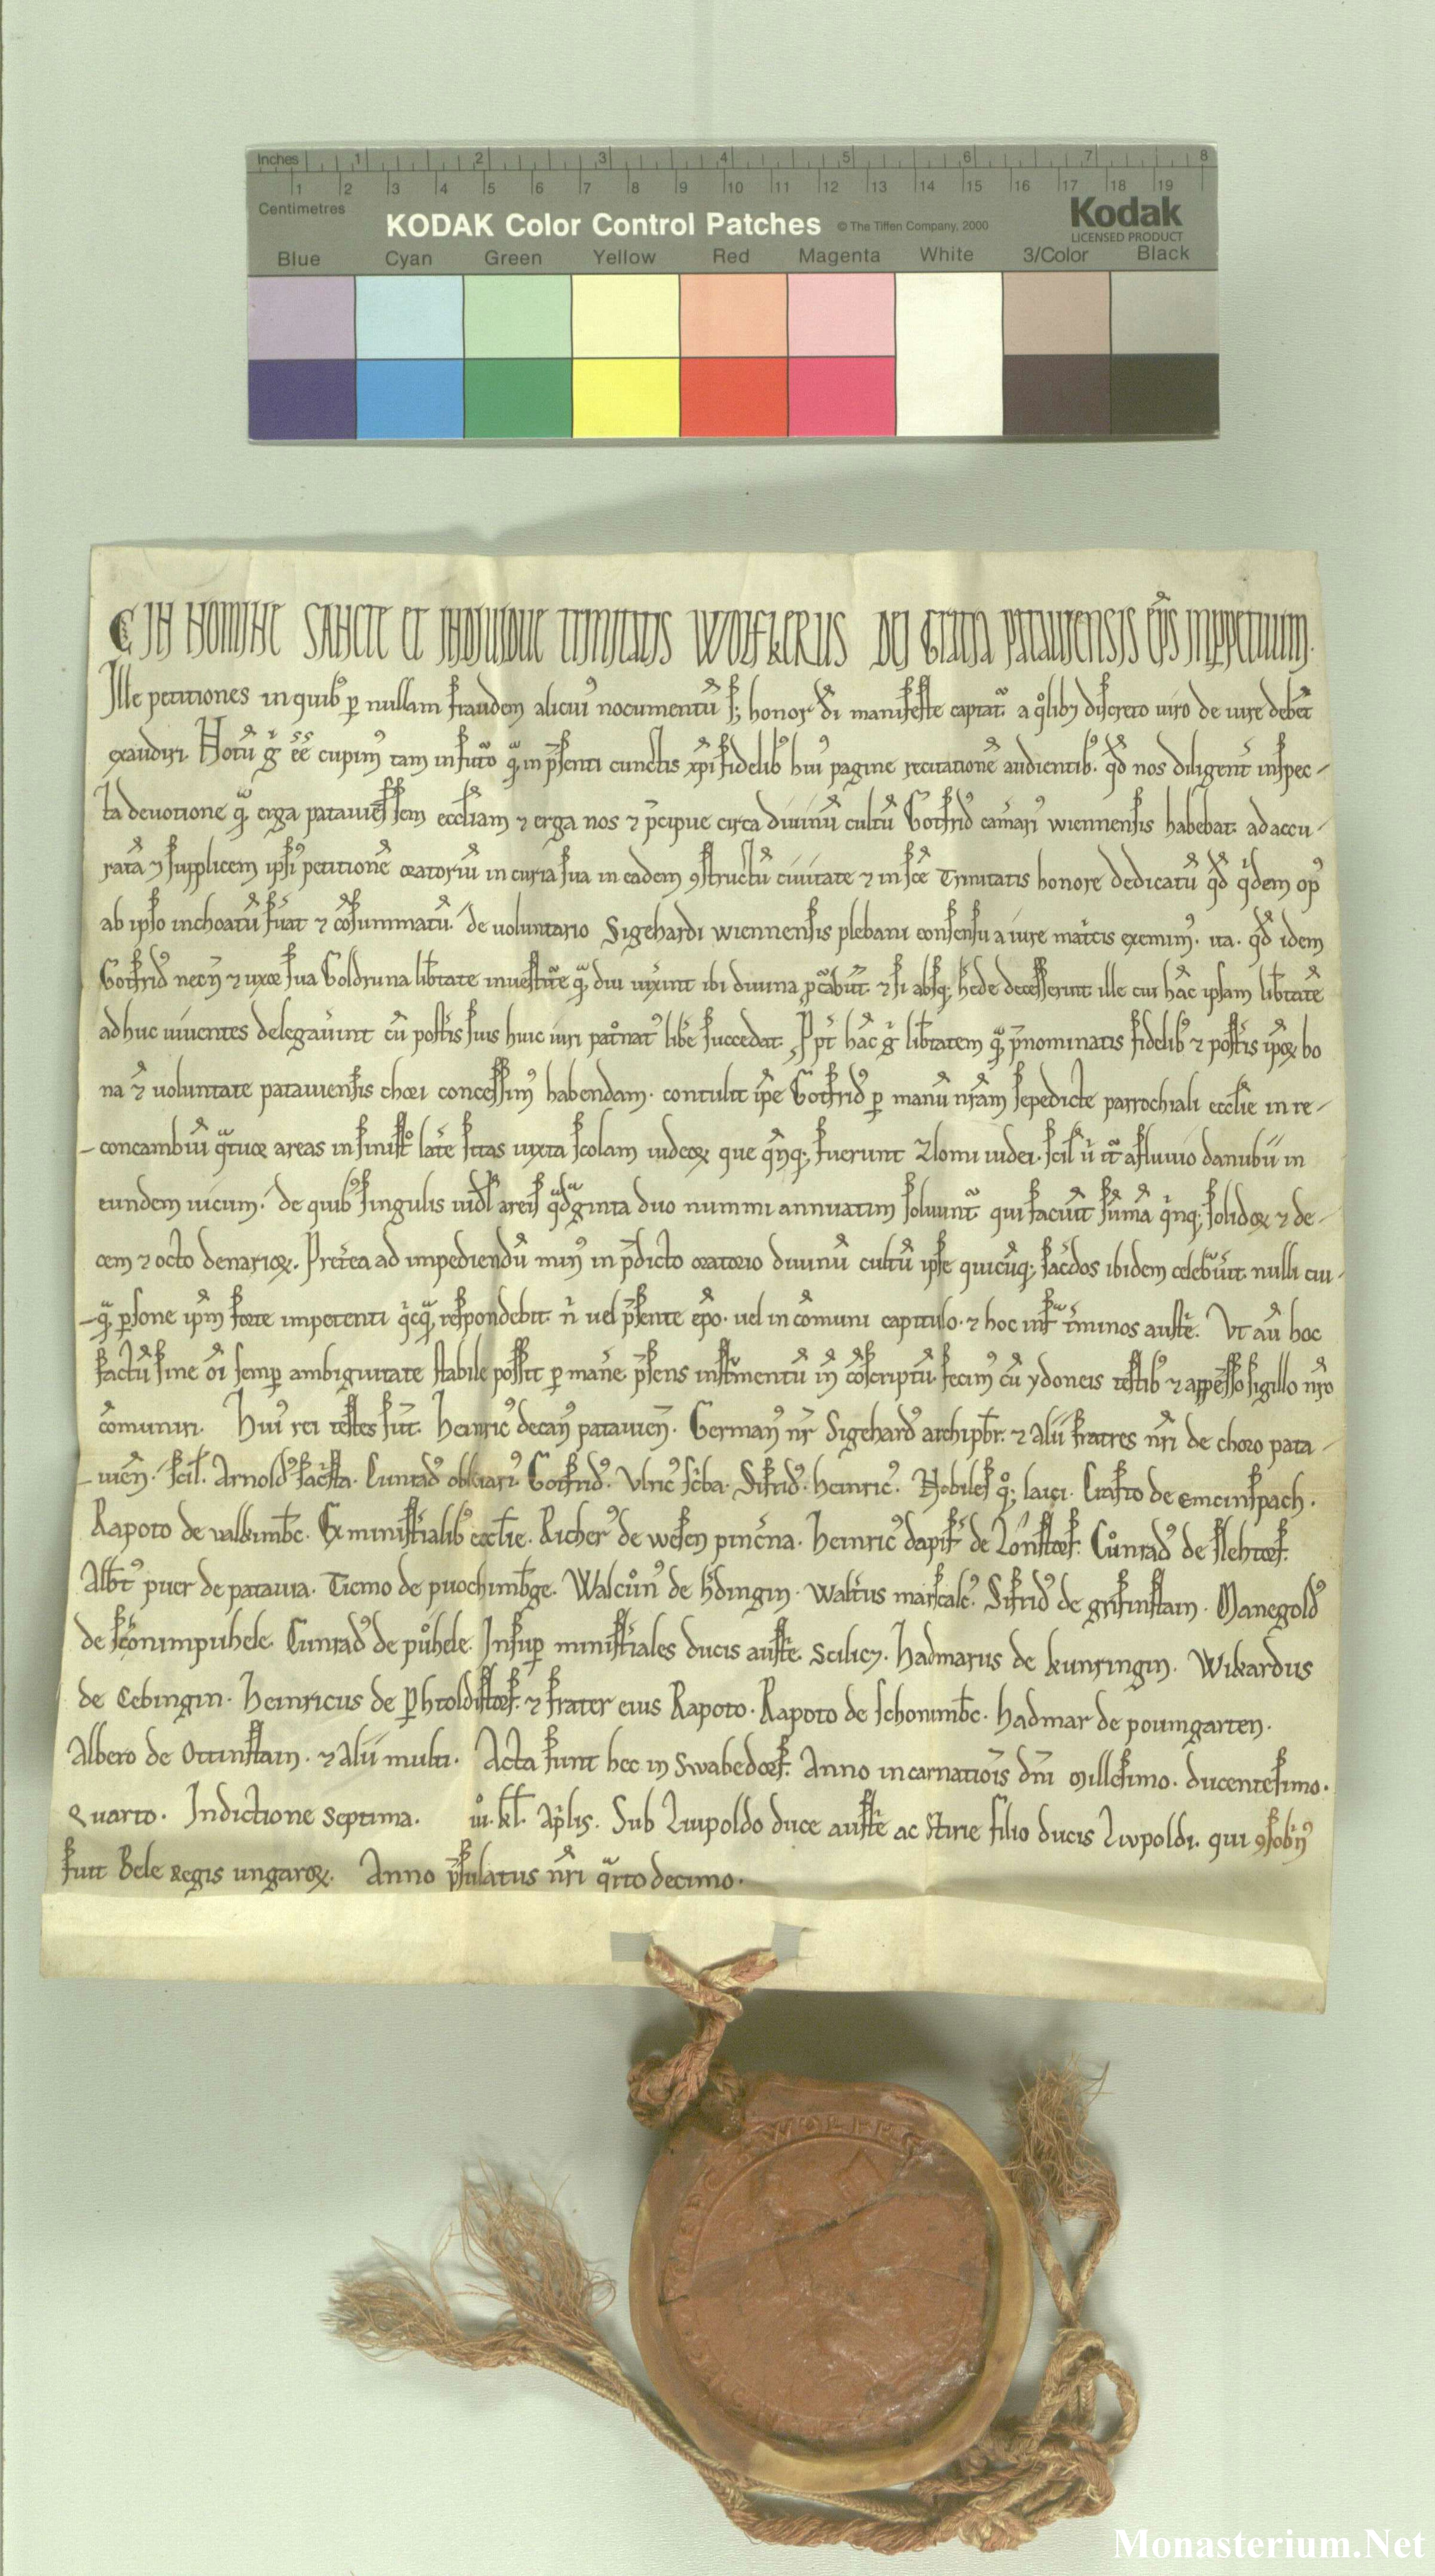 Inches 1 2 3 4 5 6 7 8
1 2 3 4 5 6 7 8 9 10 11 12 13 14 15 16 17 18 19
Centimetres
KODAK Color Control Patches © The Tiffen Company, 2000 Kodak
LICENSED PRODUCT
Blue Cyan Green Yellow Red Magenta White 3/Color Black
C IN NOMINE SANCTE ET INDIVIDUE TRINITATIS WOLFKERUS DEI GRATIA PATAUIENSIS EP̄S INꝑPETUUM.
Ille petitiones in quibꝰ ꝑ nullam fraudem alicuiꝰ nocumentū s; honor dī manifeste captat᷑ a qͦlibꝫ discreto uiro de iure debēt
exaudiri. Notū gͥ eē cupimꝰ tam in futͦo qͣ in p̄senti cunctis xp̄i fidelibꝰ huiꝰ pagine recitationē audientibꝰ. qđ nos diligent᷑ inspec-
ta deuotione qͣ erga patauiēsem eccl̄iam ⁊ erga nos ⁊ p̄cipue circa diuinū cultū Gotfridꝰ camāri wiennensis habebat. ad accu-
ratā ⁊ supplicem ipsiꝰ petitionē oratoriū in curia sua in eadem ꝯstructū ciuitate ⁊ in sc̄e Trinitatis honore dedicatū qđ qͥdem opꝰ
ab ipso inchoatū fuāt ⁊ cōsummatū. de uoluntario Sigehardi wiennensis plebani consensu a iure matͥcis exemimꝰ. ita. qđ idem
Gotfridꝰ necn̄ ⁊ uxor sua Goldruna lib̄tate inuestit᷑e qͣdiu uix̄int ibi diuina ꝓcᷓabūt. ⁊ si absqꝫ h̄ede decesserint ille cui hāc ipsam lib̄tatē
adhuc uiuentes delegauīnt cū post᷑is suis huic iuri patͦnatꝰ lib᷑e succedat. Ppt᷑ hāc gͥ lib̄tatem qͣ p̄nominatis fidelibꝰ ⁊ post᷑is ipoꝝ bo
na ⁊ uoluntate patauiensis chori concessimꝰ habendam. contulit ip̄e Gotfridꝰ ꝑ manū nr̄am sepedicte parrochiali eccl̄ie in re-
-concambiū qͣtuor areas in sinistͦ lat᷑e sitas iuxta scolam iudeoꝝ que qͥnqꝫ fuerunt Zlomi iudei. scil᷑ ū it᷑ a fluuio danubii in
eundem uicum. de quibꝰ singulis uidl᷑ areis qͣdᷓginta duo nummi annuatim soluunt᷑ qui faciūt sūmā qͥnqꝫ solidoꝝ ⁊ de-
cem ⁊ octo denarioꝝ. Pret᷑ea ad impediendū minꝰ in p̄dicto oratorio diuinū cultū ipse quicūqꝫ sac᷑dos ibidem celebᷓu᷑it. nulli cui-
-qͣ ꝑsone ip̄m forte impetenti qͥcqͣ respondebit. n̄ uel p̄sente ep̄o. uel in cōmuni capitulo. ⁊ hoc infᷓ t᷑minos austͥe. Vt aū hoc
factū sine ōi semꝑ ambiguitate stabile possit ꝑmanē᷑e. p̄sens inst᷑mentū in̄ cōscriptū. fecimꝰ cū ydoneis testibꝰ ⁊ appēsso sigillo nr̄o
cōmuniri. Huiꝰ rei testes sūt. Heinricꝰ decanꝰ patauien̄. Germanꝰ nr̄ Sigehardꝰ archipb̄r. ⁊ alii fratres nr̄i de choro pata-
-uien̄. scil᷑. Arnoldꝰ sacͥsta. Cunradꝰ oblaiariꝰ. Gotfridꝰ. Vlricꝰ scͥba. Sifridꝰ. Heinricꝰ. Nobiles qͦqꝫ laici. Crafto de emcinspach.
Rapoto de ualkimb̄c. Ex minist᷑ialibꝰ eccl̄ie. Richerꝰ de wesen pinc᷑na. Heinricꝰ dapif᷑ de Lonstorf. Cůnradꝰ de slehtorf.
Alb̄tꝰ puer de patauia. Tiemo de puochimb̄ge. Walcůnꝰ de h᷑dingin. Walt᷑us marscalcꝰ. Sifridꝰ de grifinstain. Manegoldꝰ
de scōnimpuhele. Cunradꝰ de půhele. Insuꝑ minist᷑iales ducis austͥe. Scilicꝫ. Hadmarus de kunringin. Wikardus
de Cebingin. Heinricus de ꝑhtoldistorf. ⁊ frater eius Rapoto. Rapoto de schonimb̄c. Hadmar de poumgarten.
Albero de Ottinstain. ⁊ alii multi. Acta sunt hec in Swabedorf. Anno incarnatiōis dn̄i Millesimo. ducentesimo.
Quarto. Indictione septima. iiiͦ. kl̄. Ap̄lis. Sub Liupoldo duce austͥe ac stirie filio ducis Liupoldi. qui ꝯsobͥnꝰ
fuit Bele Regis ungaroꝝ. Anno p̄sulatus nr̄i qͣrtodecimo.
WOLFK
Monasterium.Net